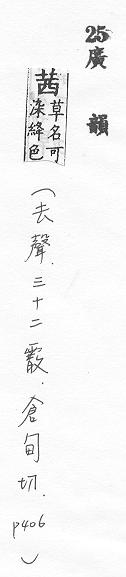 25廣韻
茜草名可染絳色
(去聲.三十二霰.倉甸切.p406)